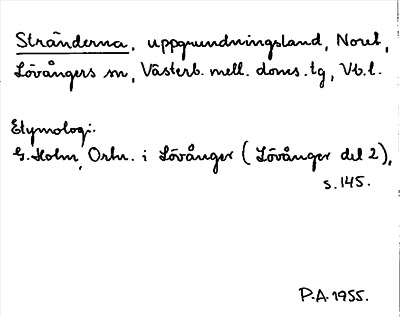 Stränderna, uppgrundningsland, Noret,
Lövångers sn, Västerb. mell. doms. tg, Vb. l.
Etymologi:
G. Holm, Ortn. i Lövånger (Lövånger del 2),
s. 145.
P.A. 1955.